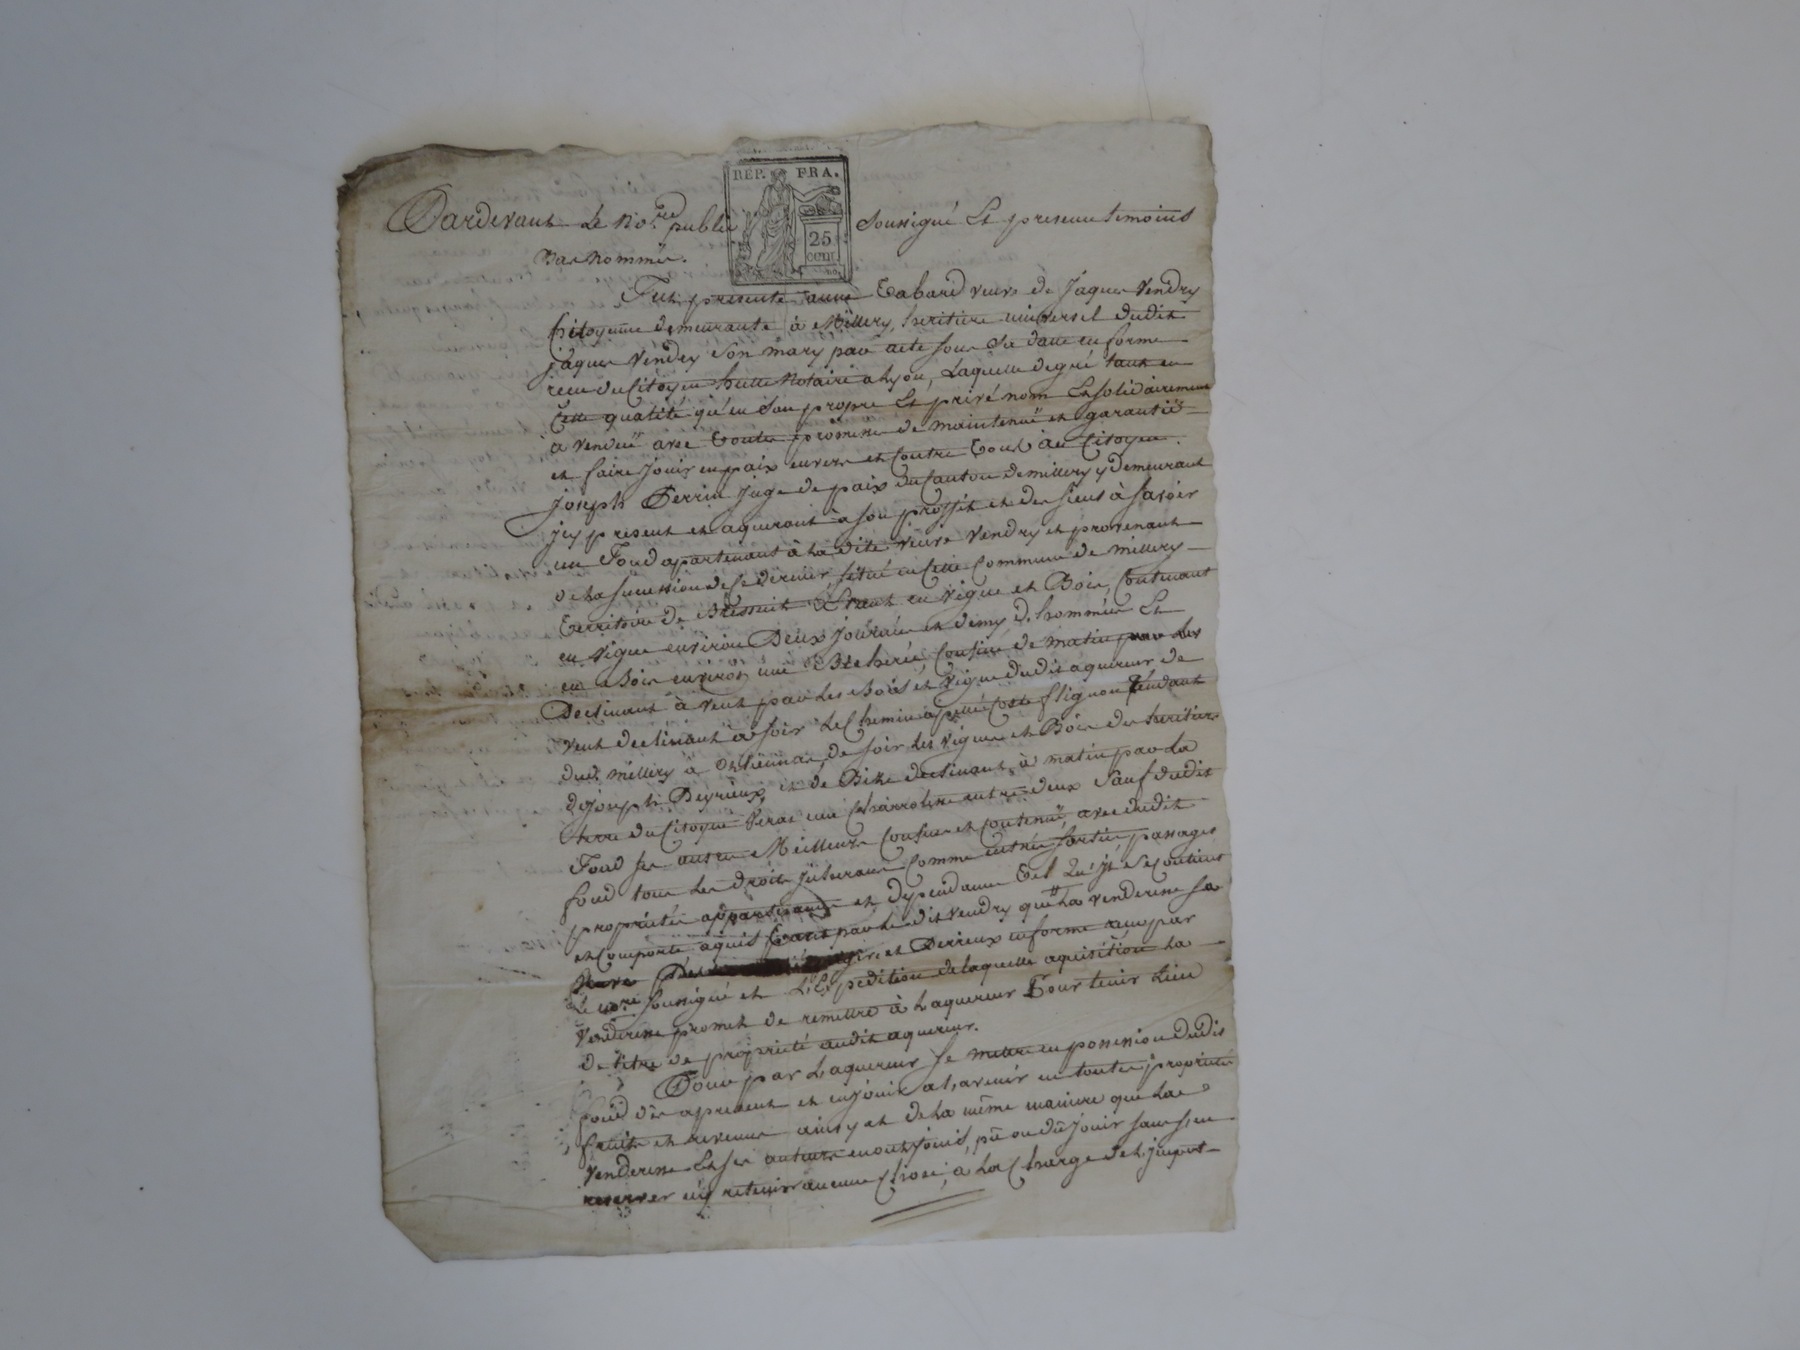 RÉP. FRA.
25
CENT.
Pardevant Le No.re public soussigné Et presence temoins
bas nommés.
Fut presente anne Tabard veuve de Jaques Vendry
Citoyenne demeurante à Millery, heritiere universel dudit
jaques Vendry son mary par acte sous Sa datte en forme
recu du Citoyen notaire a Lyon, Laquelle de gré tant en
Cette qualité qu'en son propre Et privé nom Et solidairement
a vendüe avec toutes promesse de maintenüe et garantie
et faire jouir en paix envers et contre tous au Citoyen
joseph Perrin juge de paix du Canton de millery y demeurant
jcy present et aquerant à son proffit et des siens à savoir
un Fond apartenant à La dite veuve Vendry et provenant
de La succession de Ce dernier, situé en Cette Commune de millery
territoire de en vigne et Bois, Contenant
en vigne environ Deux journée et demy d'hommée Et
en Bois environ une Bicherée, Confiné de matin par Les
Declinant à vent par Les Bois et vigne dudit aquereur de
vent declinant à soir Le Chemin apellé Coste tendant
dud. millery à de soir Les vignes et Bois des heritiers
de joseph Peyrieux, et de Bize declinant à matin par La
terre du Citoyen une entre deux Sauf dudit
Fond Ses autres Meilleurs Confins et Contenüe, avec dudit
fond tous Les droits jnherans Comme entrée sortie, passages
proprietés appartenances et dependances Tel Qu'il Se Contient
et Comporte aquis par Le dit Vendry que La venderesse
et Perrieux en forme recu par
Le no.re soussigné et L'Expedition de laquelle aquisition La
Venderesse promet de remettre à Laquereur Pour tenir Lieu
de titre de proprieté audit aquereur.
Pour par Laquereur Se mettre en possession dudit
fond dès apresent et en jouir a L'avenir en toutes proprieté
fruits et revenus ainsy et de La même maniere que La
Venderesse Et ses auteurs en ont jouis, pû ou dû jouir sans s'en
reserver n'y retenir aucune Chose, à La Charge de L'jmpot